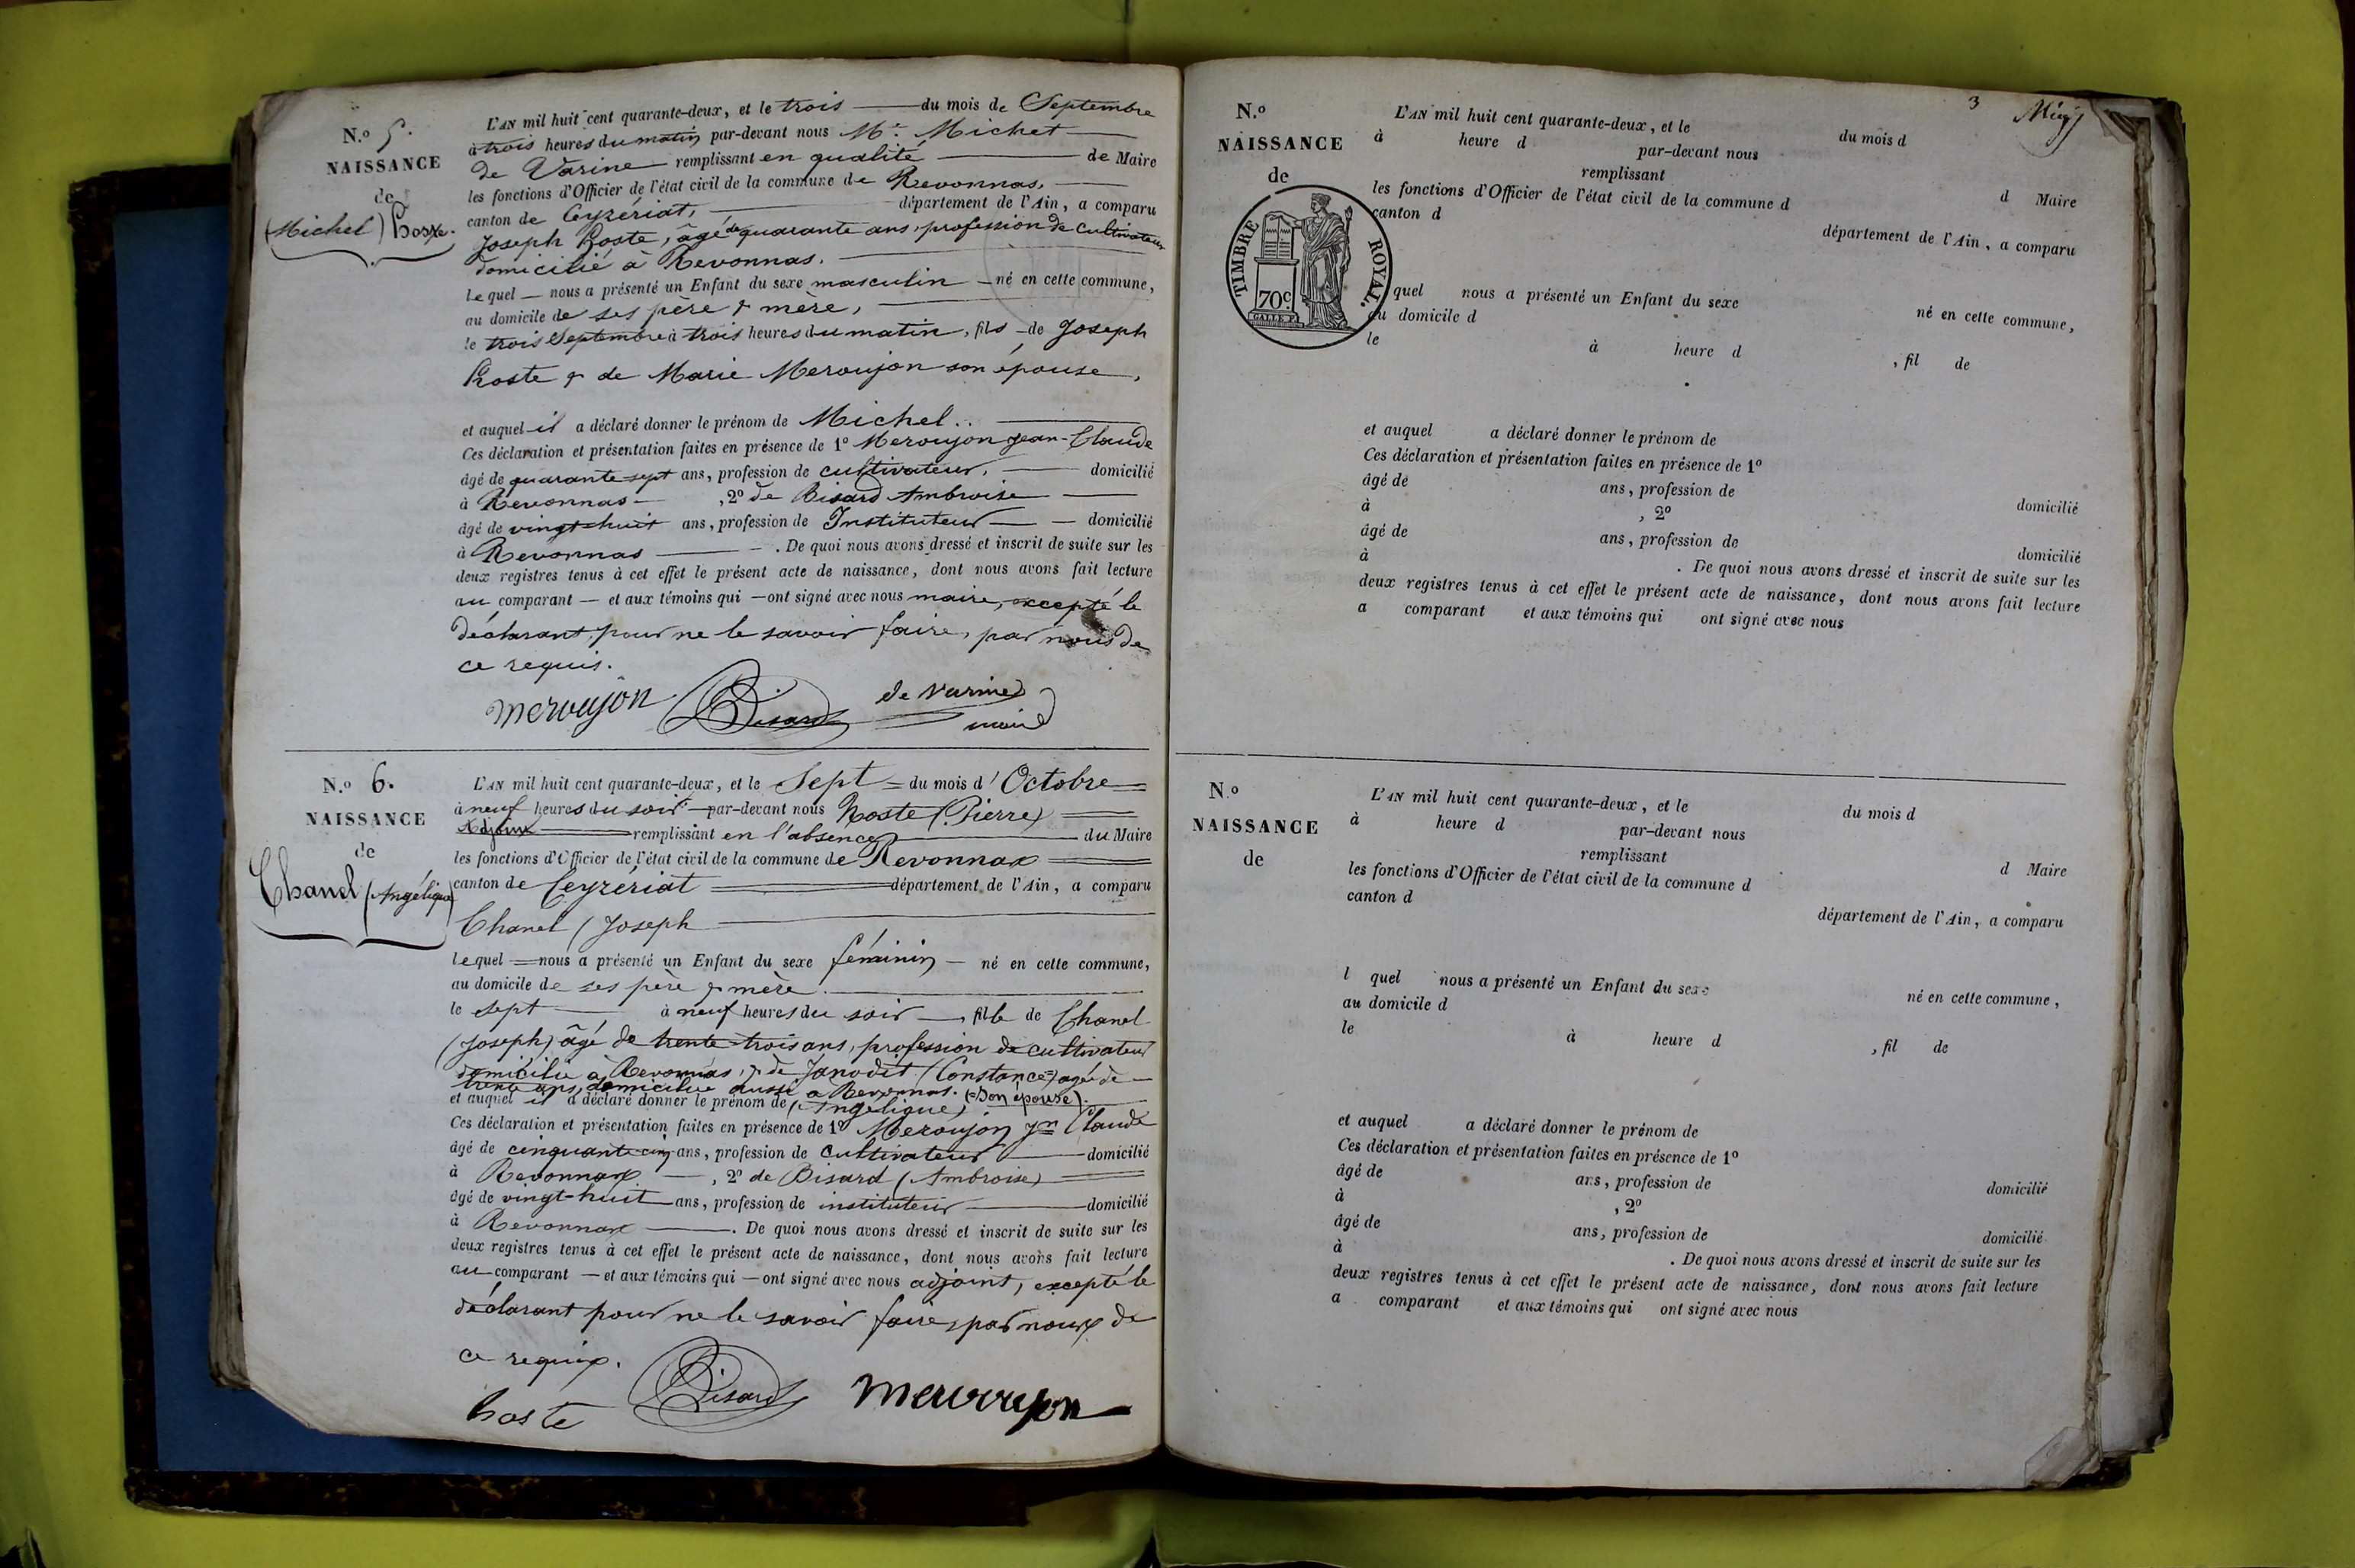 N.o 5.
NAISSANCE
de
(Michel) Roste.
L'AN mil huit cent quarante-deux, et le trois du mois de Septembre
à trois heures du matin par-devant nous Mr. Michet
de Varine remplissant en qualité de Maire
les fonctions d'Officier de l'état civil de la commune de Revonnas,
canton de Ceyzériat, département de l'Ain, a comparu
Joseph Roste, âgé de quarante ans, profession de cultivateur
domicilié à Revonnas.
lequel nous a présenté un Enfant du sexe masculin né en cette commune,
au domicile de ses père & mère,
le trois Septembre à trois heures du matin, fils de Joseph
Roste & de Marie Meroujon son épouse,
et auquel il a déclaré donner le prénom de Michel..
Ces déclaration et présentation faites en présence de 1º Meroujon Jean-Claude
âgé de quarante sept ans, profession de cultivateur, domicilié
à Revonnas , 2º de Bisard Ambroise
âgé de vingt-huit ans, profession de Instituteur domicilié
à Revonnas . De quoi nous avons dressé et inscrit de suite sur les
deux registres tenus à cet effet le présent acte de naissance, dont nous avons fait lecture
au comparant et aux témoins qui ont signé avec nous maire, excepté le
déclarant, pour ne le savoir faire, par nous de
ce requis.
meroujon Bisard de Varine
maire
N.o 6.
NAISSANCE
de
Chanel (Angélique)
L'AN mil huit cent quarante-deux, et le Sept du mois d'Octobre
à neuf heures du soir par-devant nous Roste (Pierre)
Adjoint remplissant en l'absence du Maire
les fonctions d'Officier de l'état civil de la commune de Revonnas
canton de Ceyzériat département de l'Ain, a comparu
Chanel (Joseph
lequel nous a présenté un Enfant du sexe féminin né en cette commune,
au domicile de ses père & mère.
le sept à neuf heures du soir , fille de Chanel
(Joseph) âgé de trente-trois ans, profession de cultivateur
domicilié à Revonnas, & de Janodit (Constance) agée de
trente ans, domiciliée aussi à Revonnas. (son épouse).
et auquel il a déclaré donner le prénom de (Angélique)
Ces déclaration et présentation faites en présence de 1º Meroujon Jn Claude
âgé de cinquante cinq ans, profession de cultivateur domicilié
à Revonnas , 2º de Bisard (Ambroise)
âgé de vingt-huit ans, profession de instituteur domicilié
à Revonnas . De quoi nous avons dressé et inscrit de suite sur les
deux registres tenus à cet effet le présent acte de naissance, dont nous avons fait lecture
au comparant et aux témoins qui ont signé avec nous adjoint, excepté le
déclarant pour ne le savoir faire, par nous de
ce requis.
Roste Bisard meroujon
3
N.o
NAISSANCE
de
TIMBRE ROYAL.
70c.
L'AN mil huit cent quarante-deux, et le du mois d
à heure d par-devant nous
remplissant d Maire
les fonctions d'Officier de l'état civil de la commune d
canton d département de l'Ain, a comparu
quel nous a présenté un Enfant du sexe né en cette commune,
au domicile d
le à heure d , fil de
et auquel a déclaré donner le prénom de
Ces déclaration et présentation faites en présence de 1º
âgé de ans, profession de domicilié
à , 2º
âgé de ans, profession de domicilié
à . De quoi nous avons dressé et inscrit de suite sur les
deux registres tenus à cet effet le présent acte de naissance, dont nous avons fait lecture
a comparant et aux témoins qui ont signé avec nous
N.o
NAISSANCE
de
L'AN mil huit cent quarante-deux, et le du mois d
à heure d par-devant nous
remplissant d Maire
les fonctions d'Officier de l'état civil de la commune d
canton d département de l'Ain, a comparu
l quel nous a présenté un Enfant du sexe né en cette commune,
au domicile d
le à heure d , fil de
et auquel a déclaré donner le prénom de
Ces déclaration et présentation faites en présence de 1º
âgé de ans, profession de domicilié
à , 2º
âgé de ans, profession de domicilié
à . De quoi nous avons dressé et inscrit de suite sur les
deux registres tenus à cet effet le présent acte de naissance, dont nous avons fait lecture
a comparant et aux témoins qui ont signé avec nous